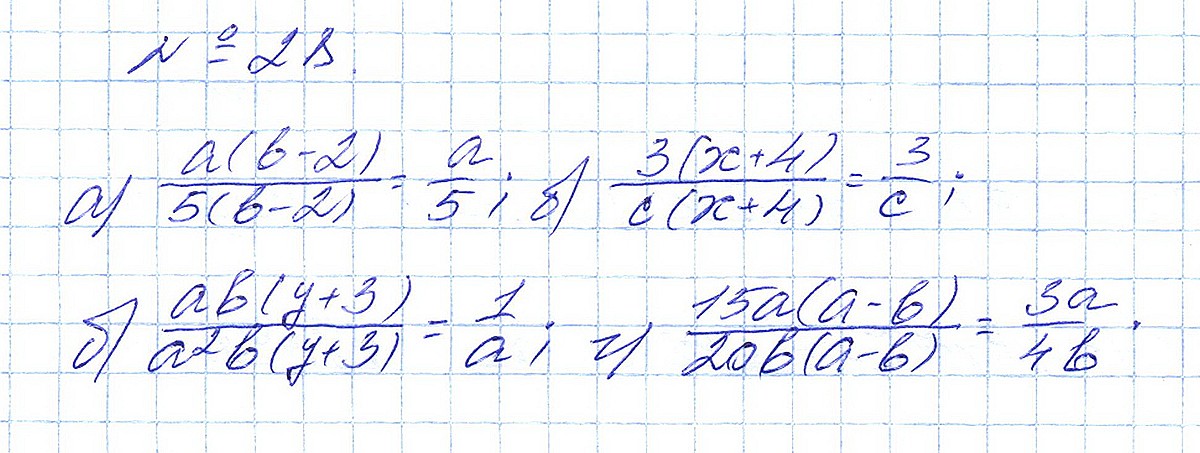 № 28.
а) a(b-2)/5(b-2) = a/5; б) 3(x+4)/c(x+4) = 3/c;
б) ab(y+3)/a²b(y+3) = 1/a; г) 15a(a-b)/20b(a-b) = 3a/4b.